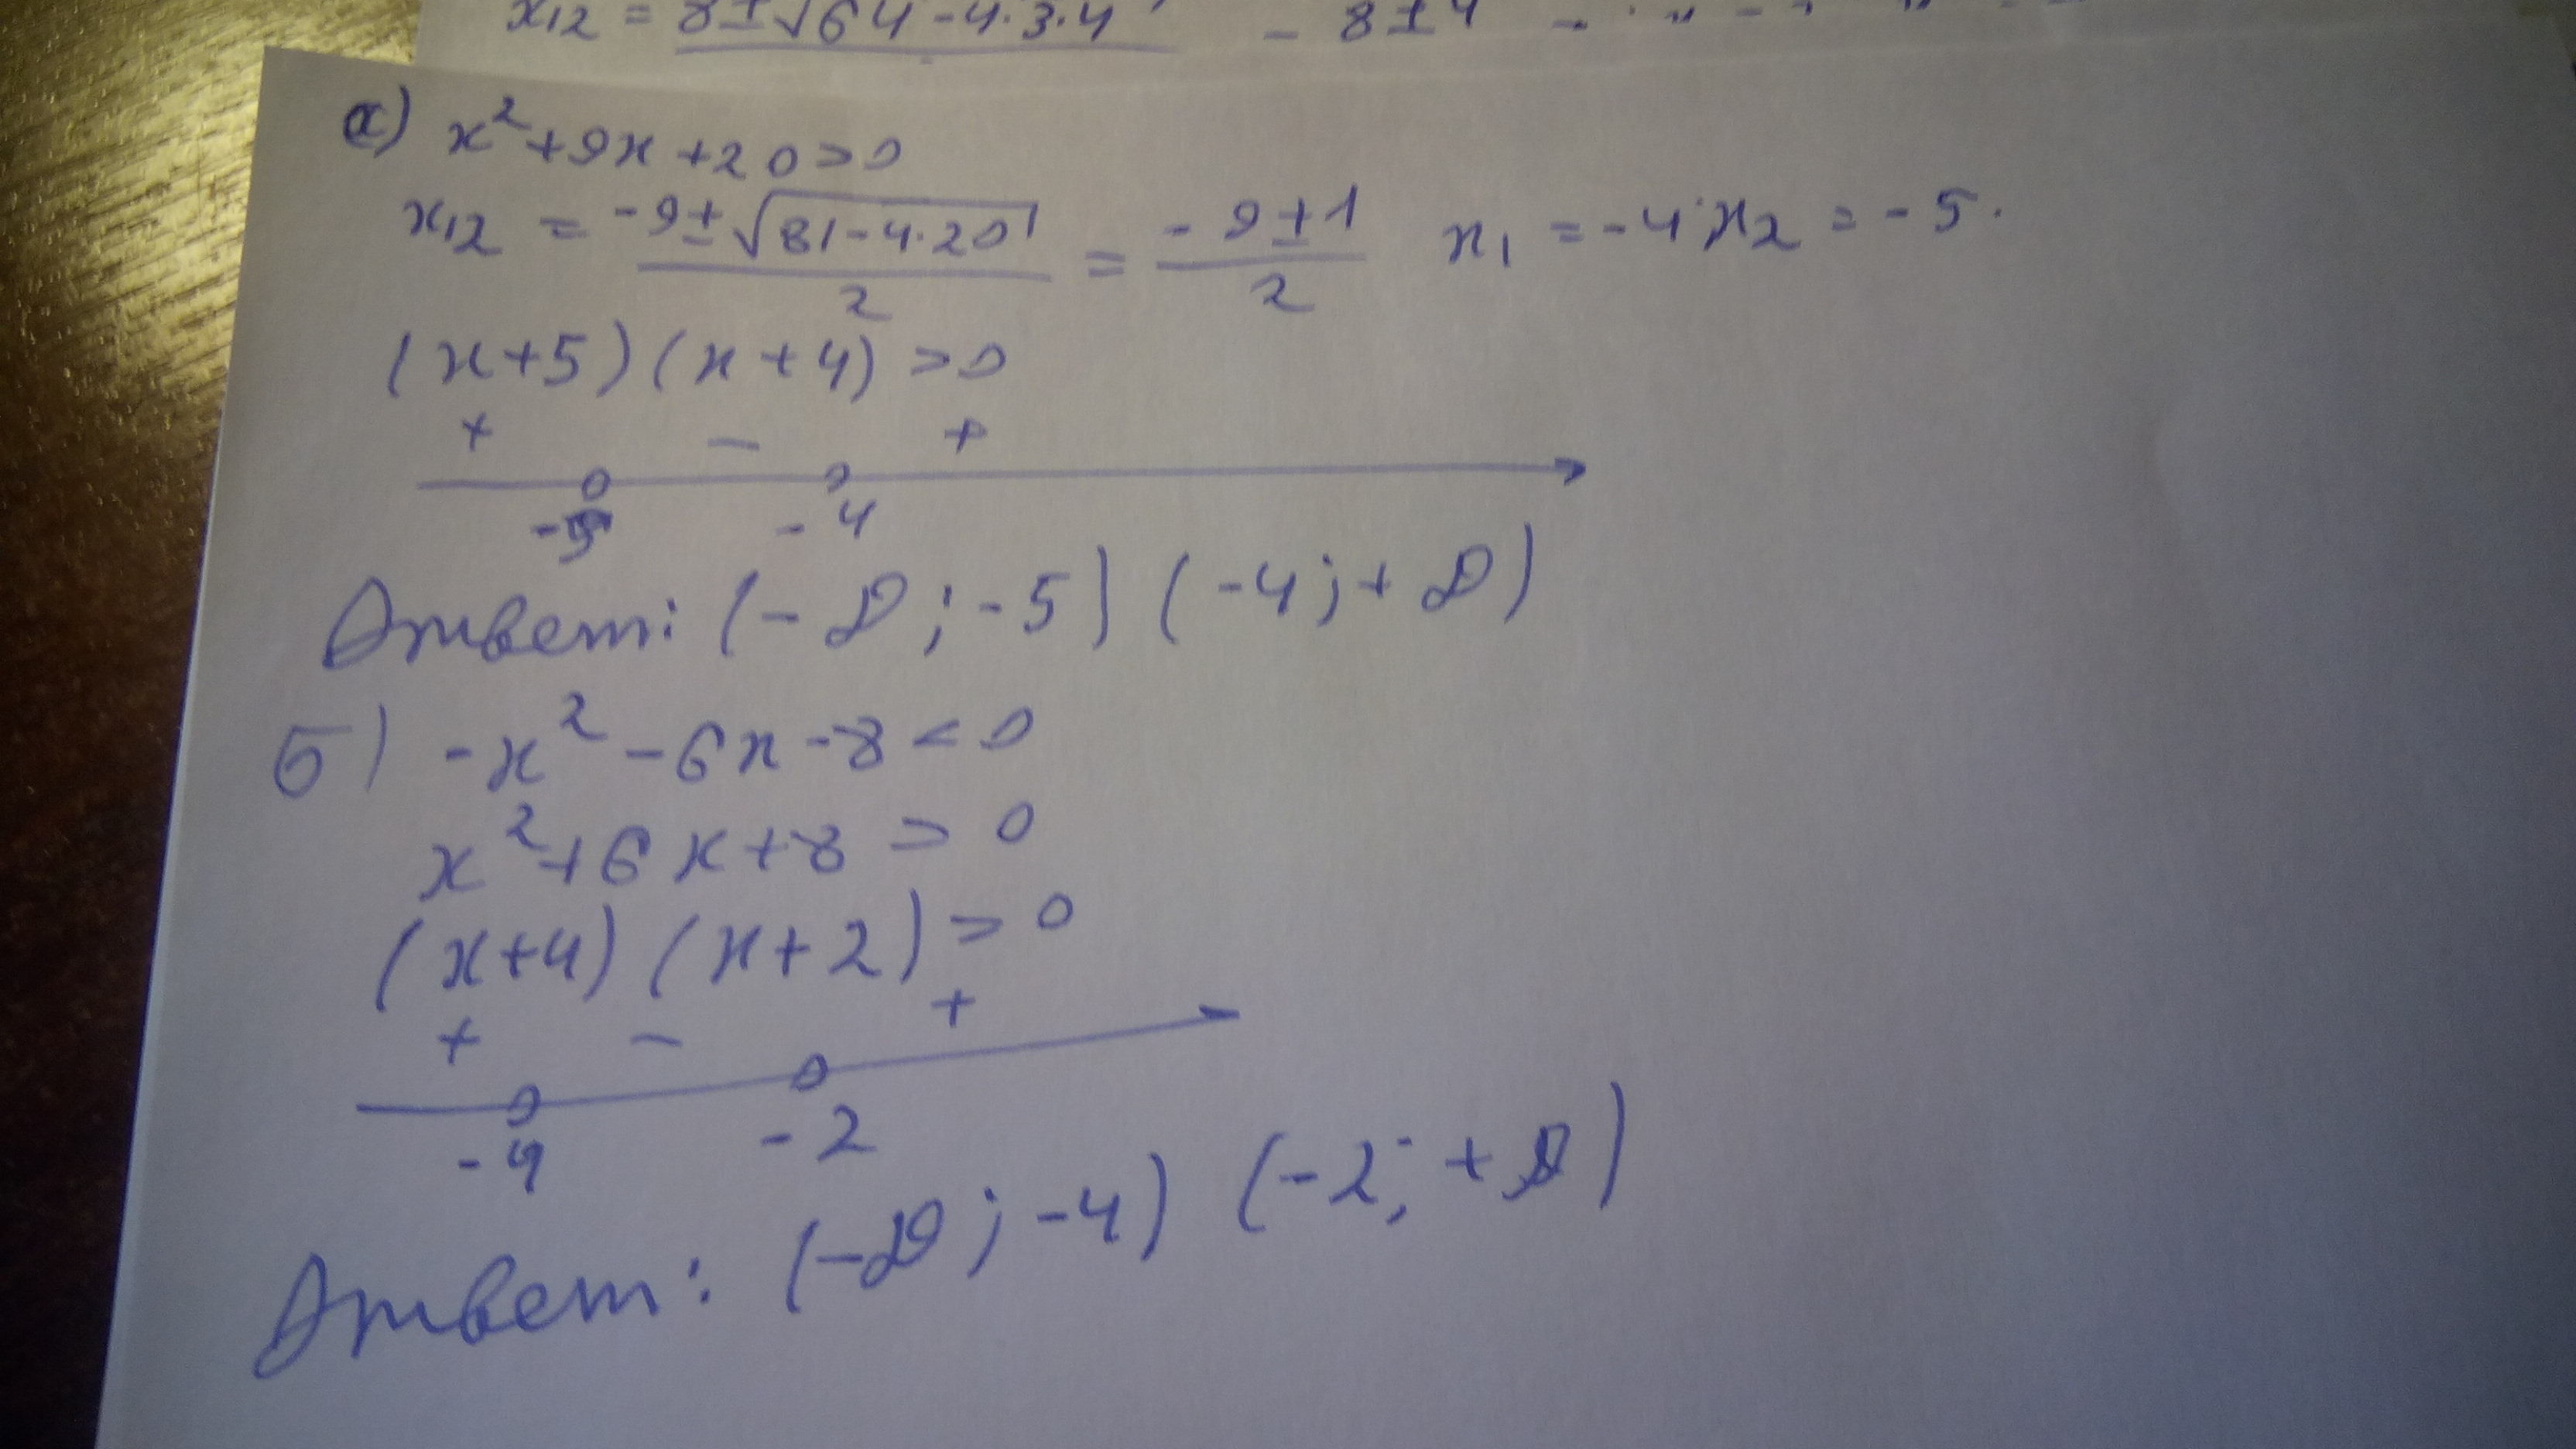 x₁₂ = 8±√64-4·3·4 - 8±4
а) x²+9x+20>0
x₁₂ = -9±√81-4·20 / 2 = -9±1 / 2 x₁ = -4 x₂ = -5.
(x+5)(x+4)>0
+ - +
-5 -4
Ответ: (-∞;-5) (-4;+∞)
б) -x²-6x-8<0
x²+6x+8>0
(x+4)(x+2)>0
+ - +
-4 -2
Ответ: (-∞;-4) (-2;+∞)